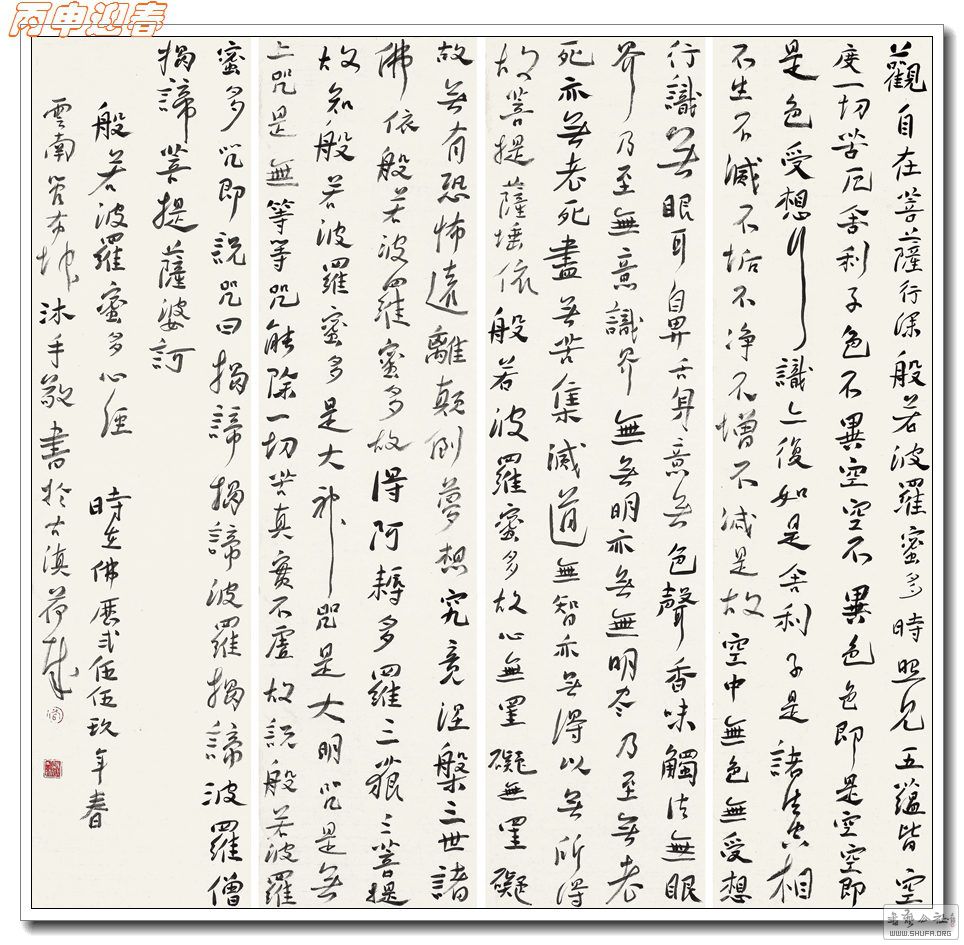 丙申迎春
觀自在菩薩行深般若波羅蜜多時照見五蘊皆空
度一切苦厄舍利子色不異空空不異色色即是空空即
是色受想行識亦復如是舍利子是諸法空相
不生不滅不垢不净不增不减是故空中無色無受想
行識無眼耳鼻舌身意無色聲香味觸法無眼
界乃至無意識界無無明亦無無明尽乃至無老
死亦無老死盡無苦集滅道無智亦無得以無所得
故菩提薩埵依般若波羅蜜多故心無罣礙無罣礙
故無有恐怖遠離顛倒夢想究竟涅槃三世諸
佛依般若波羅蜜多故得阿耨多羅三藐三菩提
故知般若波羅蜜多是大神咒是大明咒是無
上咒是無等等咒能除一切苦真實不虛故說般若波羅
蜜多咒即說咒曰揭諦揭諦波羅揭諦波羅僧
揭諦菩提薩婆訶
般若波羅蜜多心經 時在佛曆弍伍伍玖年春
雲南沐手敬書於古滇荷城
WWW.SHUFA.ORG